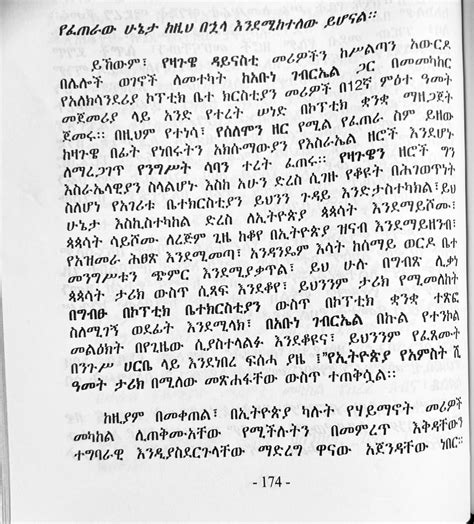 የፈጠራው ሁኔታ ከዚህ በኋላ እንደሚከተለው ይሆናል።
ይኸውም፣ የዛጉዌ ዳይናስቲ መሪዎችን ከሥልጣን አውርዶ
በሌሎች ወገኖች ለመተካት ከአቡነ ገብርኤል ጋር በመመካከር
የአለክሳንደሪያ ኮፕቲክ ቤተ ክርስቲያን መሪዎች በ12ኛ ምዕተ ዓመት
መጀመሪያ ላይ አንድ የተረት ሠነድ በኮፕቲክ ቋንቋ ማዘጋጀት
ጀመሩ። በዚህም የተነሳ፣ የሰለሞን ዘር የሚል የፈጠራ ስም ይዘው
ከዛጉዌ በፊት የነበሩትን አክሱማውያን የእስራኤል ዘሮች እንደሆኑ
ለማረጋገጥ የንግሥት ሳባን ተረት ፈጠሩ። የዛጉዌን ዘሮች ግን
እስራኤላዊያን ስላልሆኑ እስከ አሁን ድረስ ሲገዙ የቆዩት በሕገወጥነት
ስለሆነ የአይሩት ቤተክርስቲያን ይህንን ጉዳይ እንድታስተካክል፣ ይህ
ሁኔታ እስኪስተካከል ድረስ ለኢትዮጵያ ጳጳሳት እንደማይሾሙ፣
ጳጳሳት ሳይሾሙ ለረጅም ጊዜ ከቆየ በኢትዮጵያ ዝናብ እንደማይዘንብ፣
የአዝመራ ሕፀጽ እንደሚመጣ፣ አንዳንዴም እሳት ከሰማይ ወርዶ ቤተ
መንግሥቱን ጭምር እንደሚያቃጥል፣ ይህ ሁሉ በግብጽ ሊቃነ
ጳጳሳት ታሪክ ውስጥ ሲጻፍ እንደቆየ፣ ይህንንም ታሪክ የሚመለከት
በግብፁ በኮፕቲክ ቤተክርስቲያን ውስጥ በኮፕቲክ ቋንቋ ተጽፎ
ስለሚገኝ ወደፊት እንደሚላክ፣ በአቡነ ገብርኤል በኩል የተንኮል
መልዕክት በየጊዜው ሲያስተላልፉ እንደቆዩና፣ ይህንንም የፈጸሙት
በንጉሥ ሀርቤ ላይ እንደነበረ ፍስሐ ያዜ ፤"የኢትዮጵያ የአምስት ሺ
ዓመት ታሪክ በሚለው መጽሐፋቸው ውስጥ ተጠቅሷል።
ከዚያም በመቀጠል፣ በኢትዮጵያ ካሉት የሃይማኖት መሪዎች
መካከል ሊጠቅሙአቸው የሚችሉትን በመምረጥ እቅዳቸውን
ተግባራዊ እንዲያስደርጉላቸው ማድረግ ዋናው አጀንዳቸው ነበር።
- 174 -